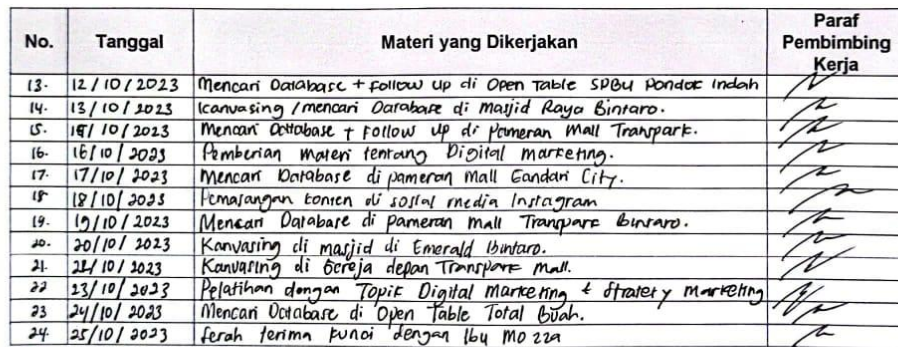 No. Tanggal Materi yang Dikerjakan Paraf Pembimbing Kerja
13. 12/10/2023 Mencari Database + follow up di Open Table SPBU Pondok Indah
14. 13/10/2023 Kanvasing /mencari Database di Masjid Raya Bintaro.
15. 15/10/2023 Mencari Database + Follow up di Pameran Mall Transpark.
16. 16/10/2023 Pemberian materi tentang Digital marketing.
17. 17/10/2023 Mencari Database di pameran Mall Gandari City.
18 18/10/2023 Pemasangan konten di sosial media Instagram
19. 19/10/2023 Mencari Database di Pameran Mall Transpark Bintaro.
20. 20/10/2023 Kanvasing di masjid di Emerald Bintaro.
21. 22/10/2023 Kanvasing di Gereja depan Transpark Mall.
22 23/10/2023 Pelatihan dengan Topik Digital Marketing & Stratery Marketing
23 24/10/2023 Mencari Database di Open Table Total Buah.
24. 25/10/2023 Serah terima kunci dengan Ibu Mozza